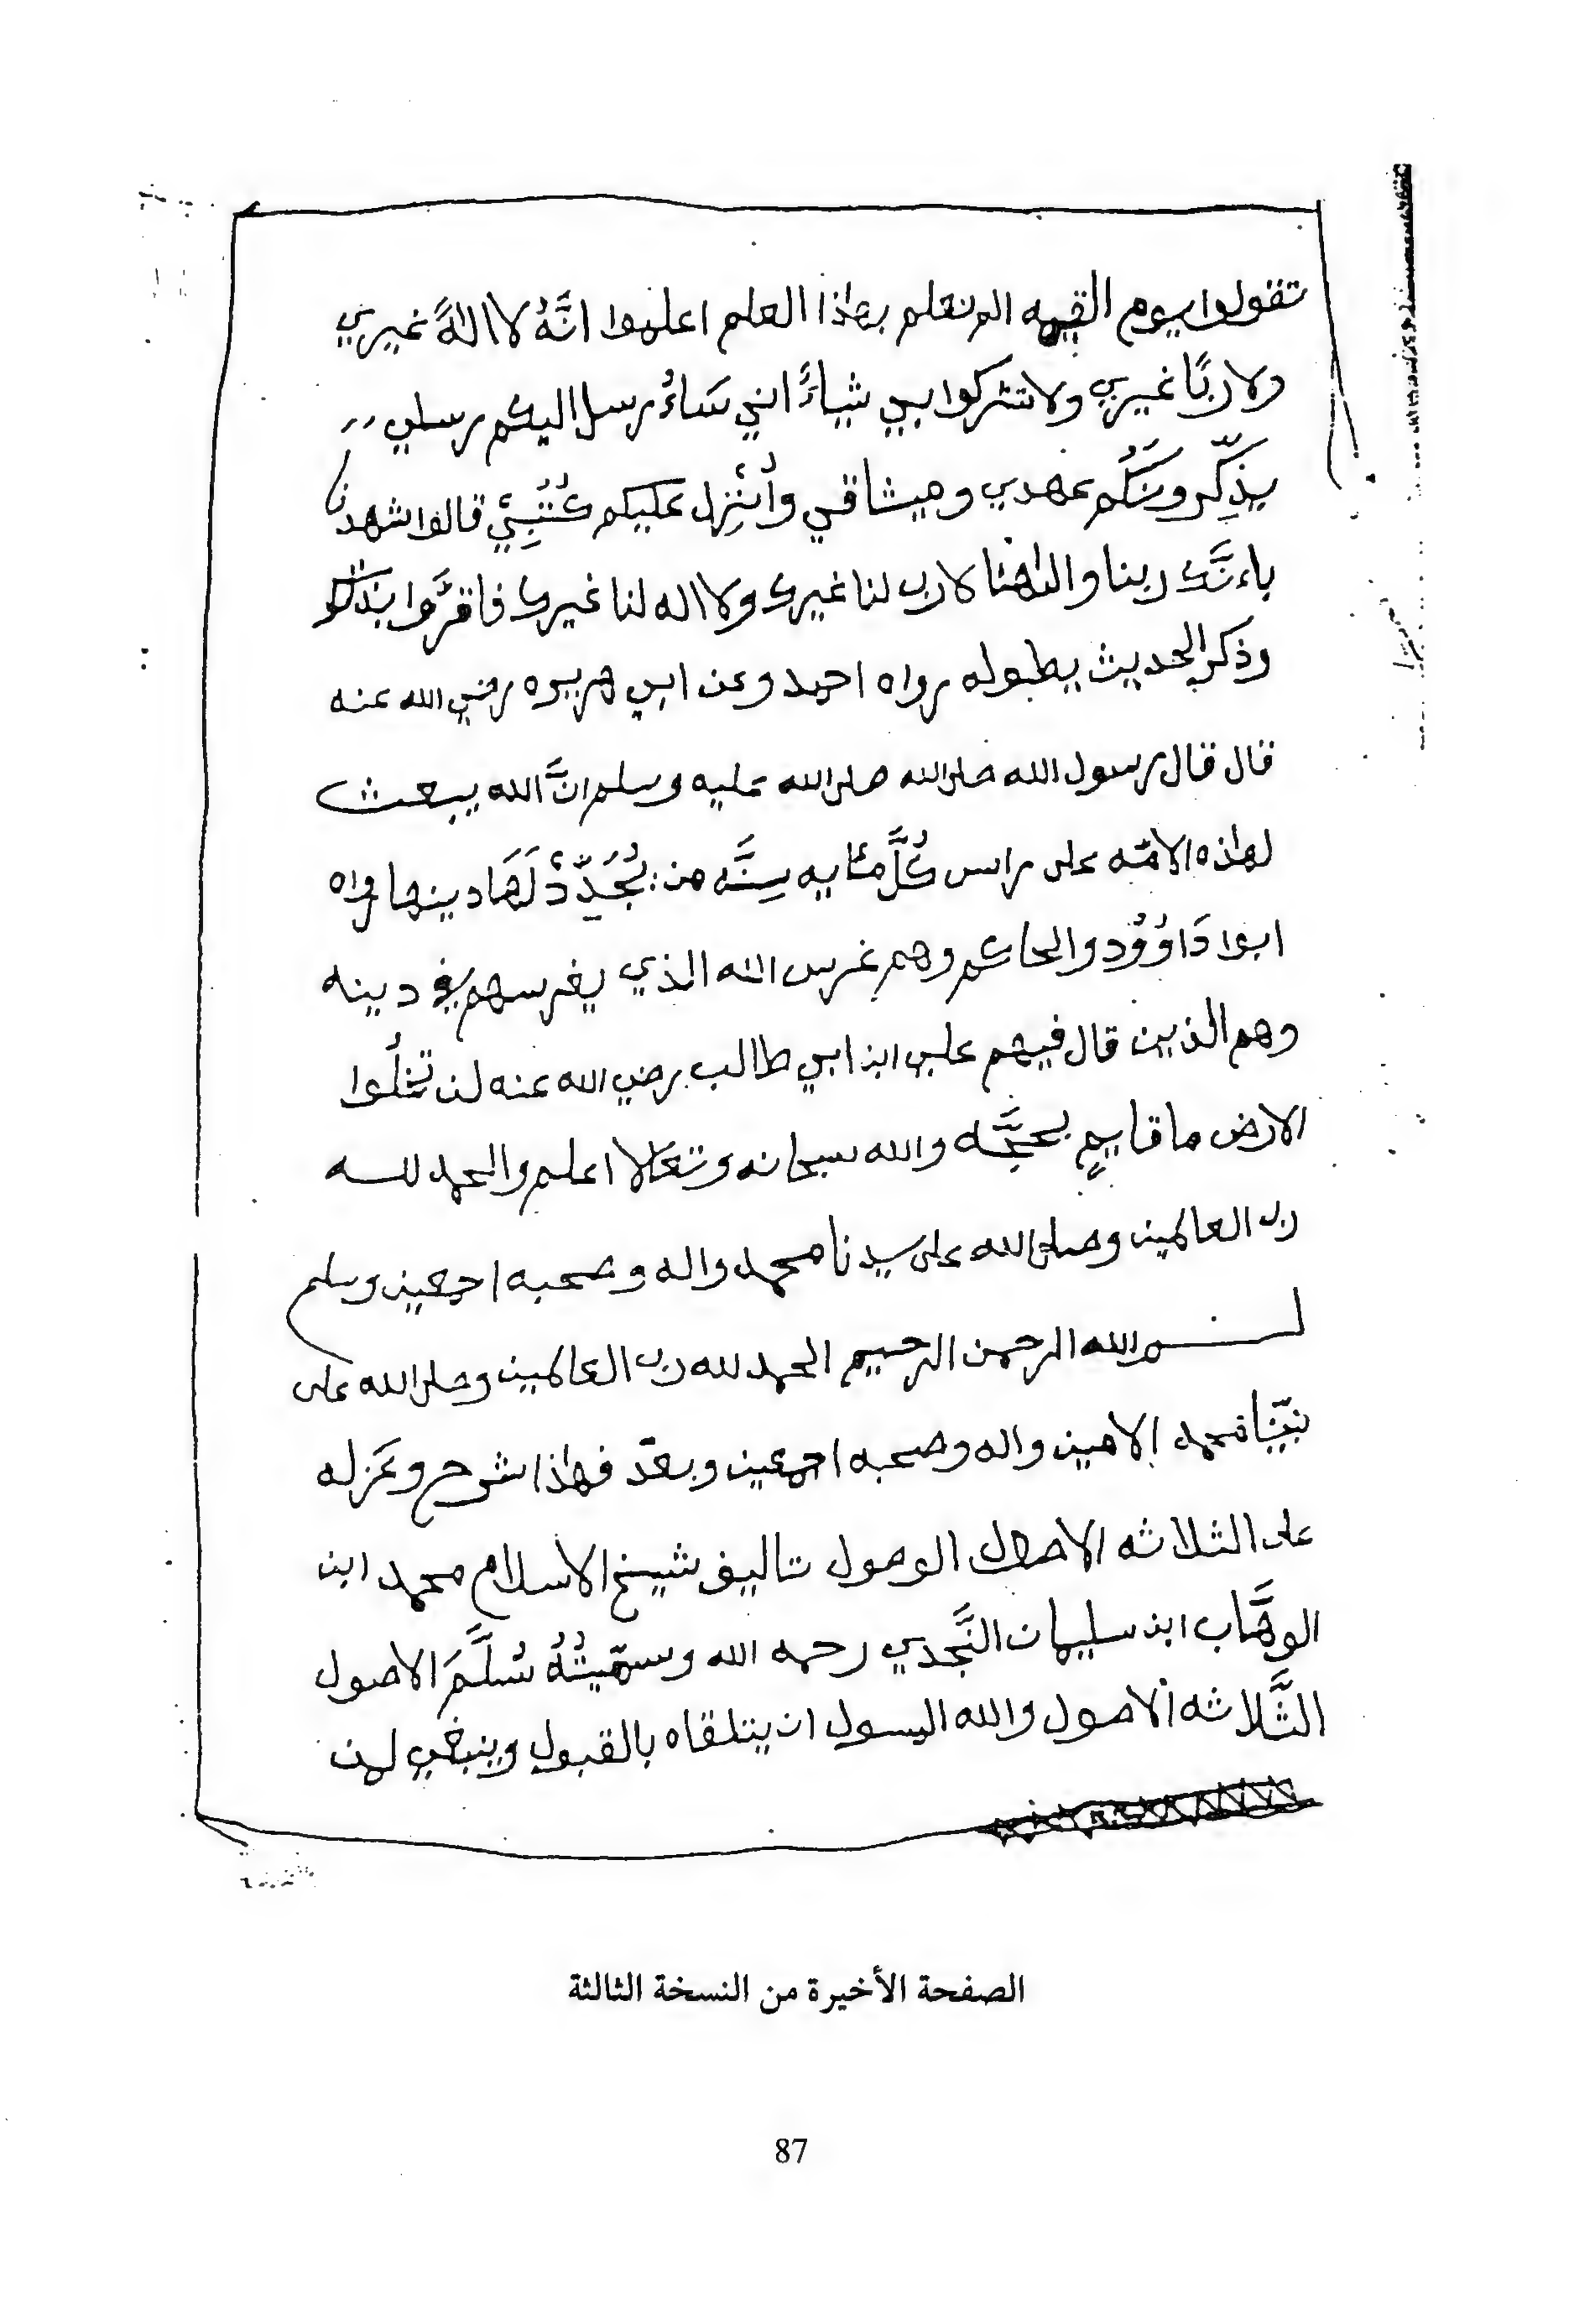 تقولوا يوم القيمه الم نعلم بهاذا العلم اعلموا انَّهُ لا الاهً غيري
ولا ربًا غيري ولا تشركوا بي شياءً اني سَاءُرسل اليكم رسلي
يذكِّرونَكُم عهدي وميثاقي وأُنْزِل عليكم كُتُبِيْ قالوا شهدنا
باءنَّك ربنا والاهنا لا رب لنا غيرك ولا اله لنا غيرك فاقرَّوا بذالك
وذكر الحديث يطوله رواه احمد وعن ابي هريره رضي الله عنه
قال قال رسول الله صلى الله صلى الله عليه وسلم انَّ الله يبعث
لهاذه الامّه على راس كُلَّ مئايه سِنَّه من يُجَدِّدْ لَهَا دينها رواه
ابوا دَاوُوُد والحاكم وهم غرس الله الذي يغرسهم في دينه
وهم الذين قال فيهم علي ابن ابي طالب رضي الله عنه لن تخلُوا
الارض ما قايمٍ بحجَّه والله سبحانه وتعَالا اعلم والحمد لله
رب العالمين وصلى الله على سيدنا محمد واله وصحبه اجمعين وسلم
بسم الله الرحمن الرحيم الحمد لله رب العالمين وصلى الله على
نبيّنا محمد الامين واله وصحبه اجمعين وبعد فهاذا شرح وعَزله
على الثلاثه الاصول الوصول تاليف شيخ الاسلام محمد ابن
الوهَّاب ابن سليمان النَّجدي رحمه الله وسمّيتُهُ سُلَّمَ الاصول
الثَّلاثه الاصول والله المسول ان يتلقاه بالقبول وينبغي لمن
الصفحة الأخيرة من النسخة الثالثة
87